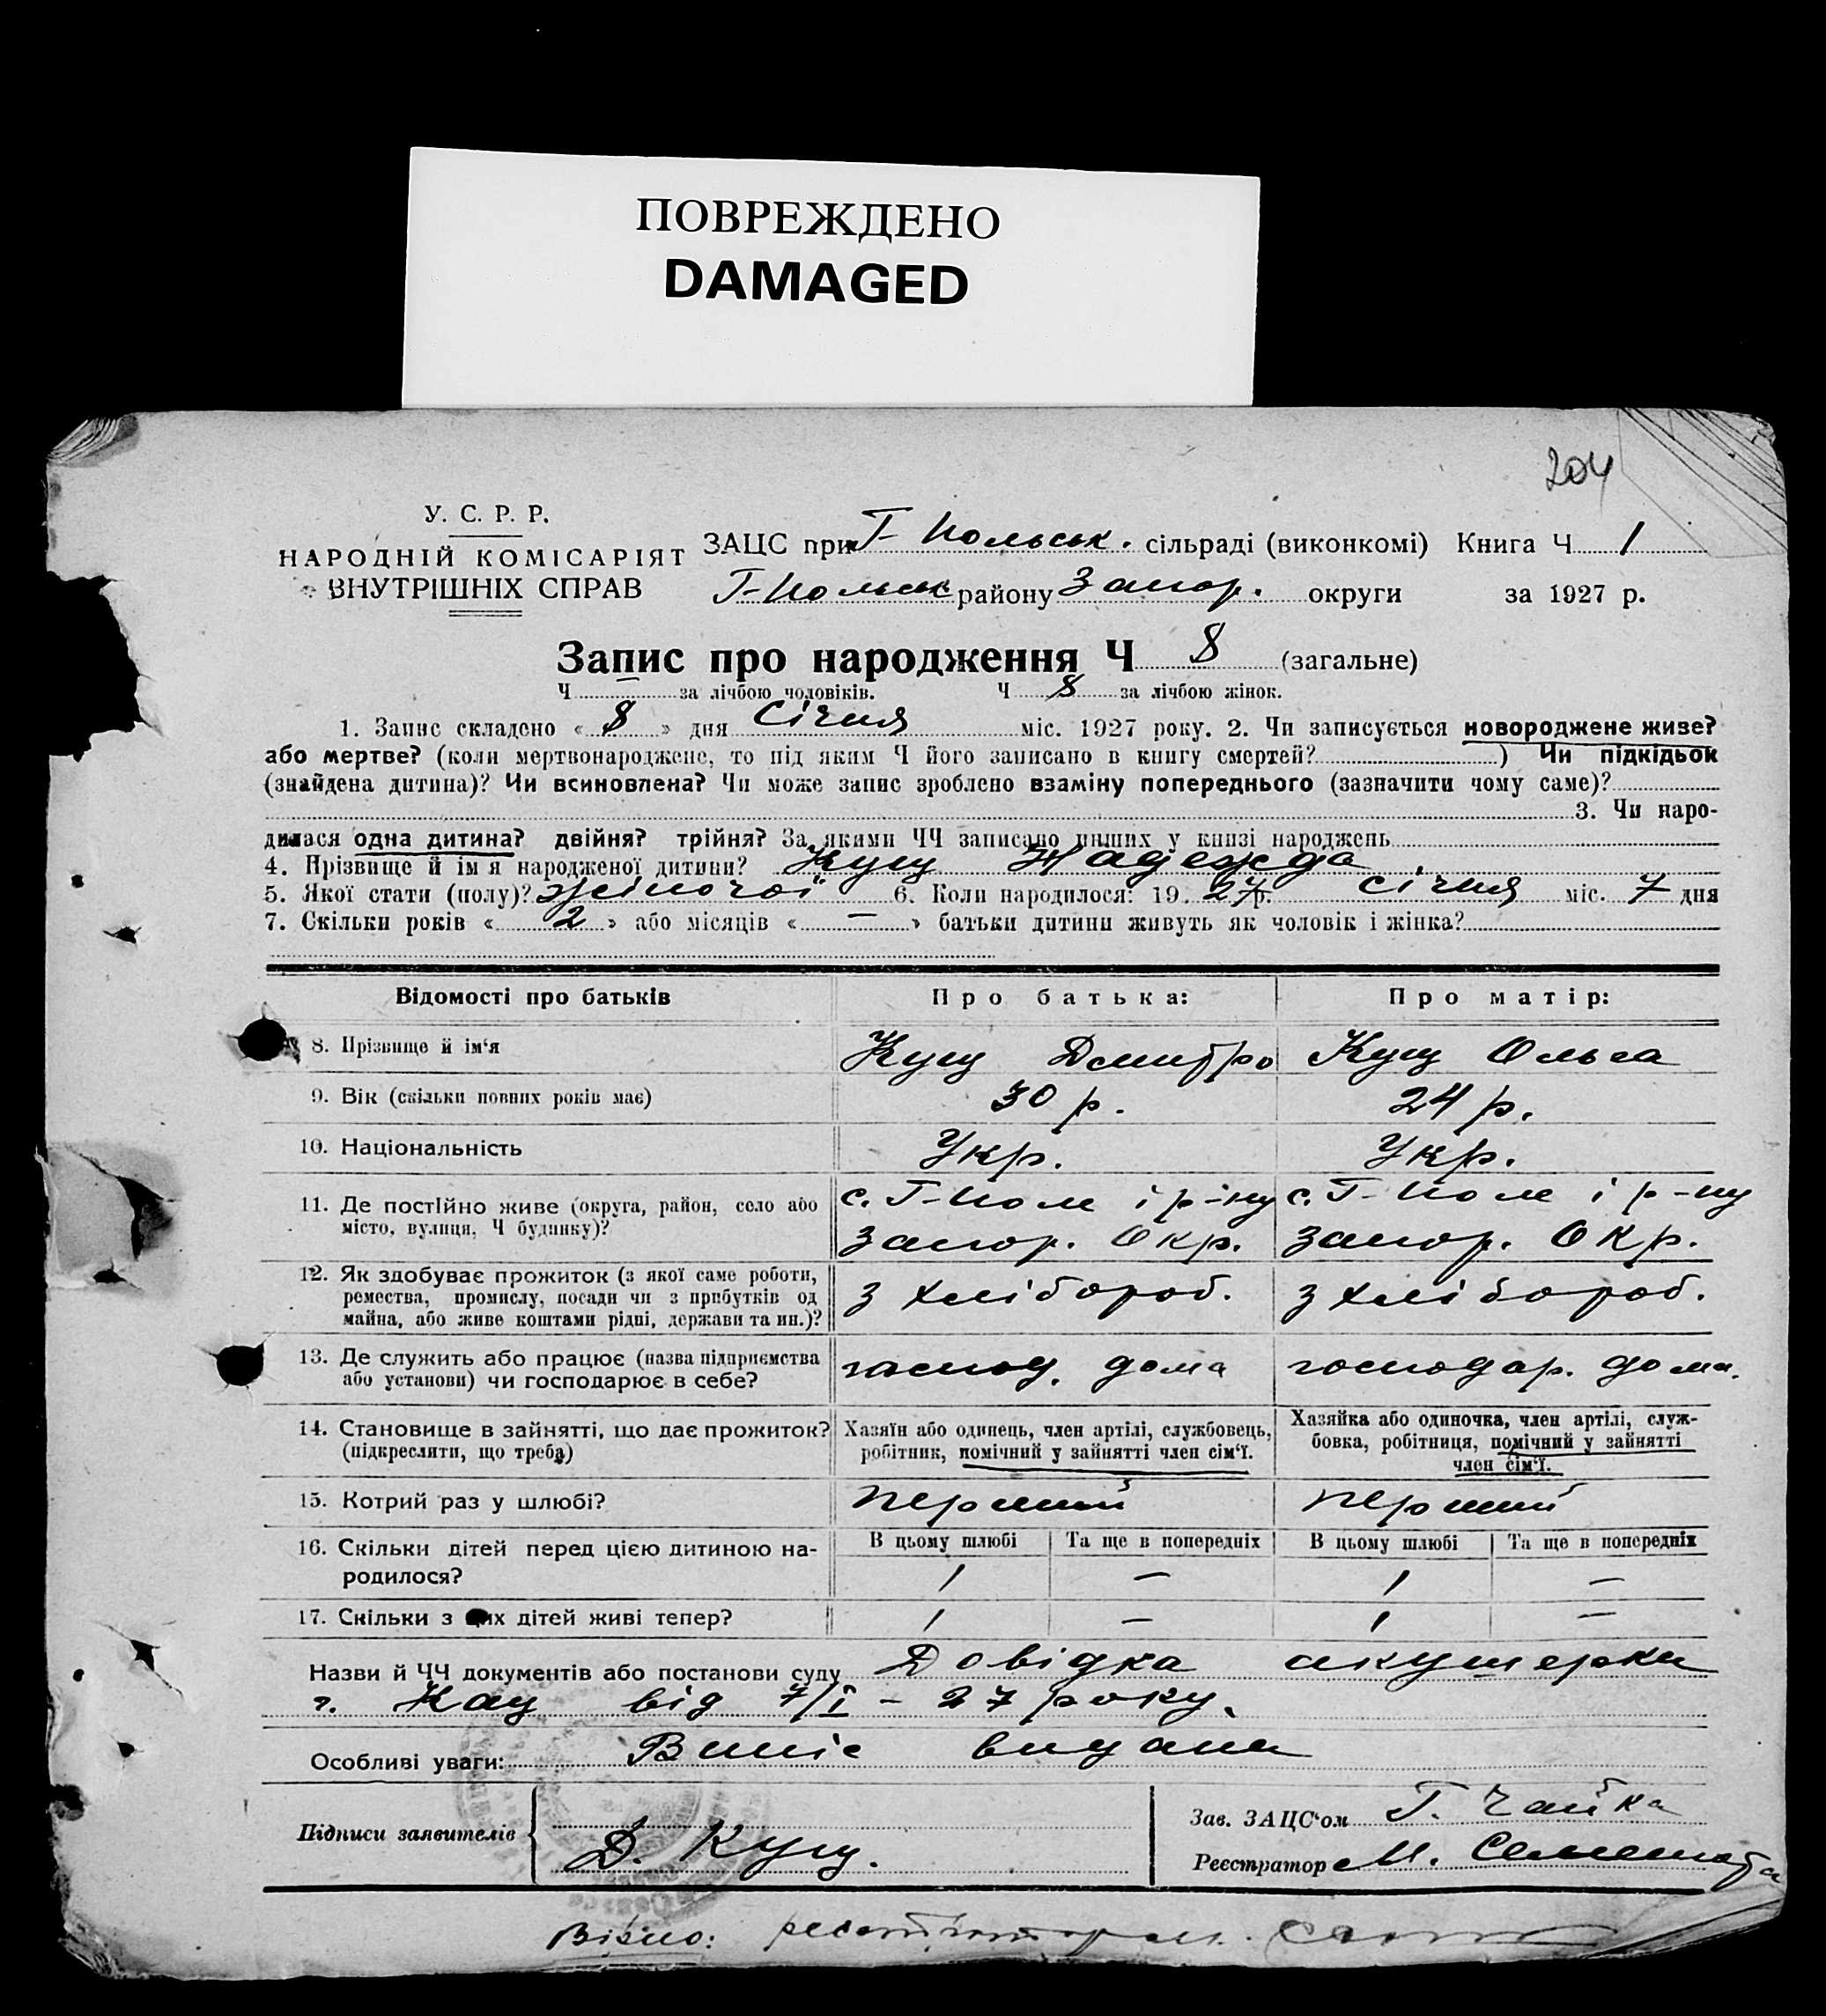 ПОВРЕЖДЕНО
DAMAGED
204
У. С. Р. Р.
НАРОДНІЙ КОМІСАРІЯТ
ВНУТРІШНІХ СПРАВ
ЗАЦС при Г-Польськ. сільраді (виконкомі) Книга Ч 1
Г-Польськ району Запор. округи за 1927 р.
Запис про народження Ч 8 (загальне)
Ч — за лічбою чоловіків. Ч 8 за лічбою жінок.
1. Запис складено « 8 » дня Січня міс. 1927 року. 2. Чи записується новороджене живе?
або мертве? (коли мертвонароджене, то під яким Ч його записано в книгу смертей? ) Чи підкідьок
(знайдена дитина)? Чи всиновлена? Чи може запис зроблено взаміну попереднього (зазначити чому саме)?
3. Чи наро-
дилася одна дитина? двійня? трійня? За якими ЧЧ записано инших у книзі народжень
4. Прізвище й ім'я народженої дитини? Кущ Надежда
5. Якої стати (полу)? жіночої 6. Коли народилося: 19 27 р. Січня міс. 7 дня
7. Скільки років « 2 » або місяців « — » батьки дитини живуть як чоловік і жінка?
Відомості про батьків Про батька: Про матір:
8. Прізвище й ім'я Кущ Дмитро Кущ Ольга
9. Вік (скільки повних років має) 30 р. 24 р.
10. Національність Укр. Укр.
11. Де постійно живе (округа, район, село або с. Г-Поле і р-ну с. Г-Поле і р-ну
місто, вулиця, Ч будинку)? Запор. Окр. Запор. Окр.
12. Як здобуває прожиток (з якої саме роботи,
ремества, промислу, посади чи з прибутків од з хлібороб. з хлібороб.
майна, або живе коштами рідні, держави та ин.)?
13. Де служить або працює (назва підприємства господ. дома господар. дома.
або установи) чи господарює в себе?
14. Становище в зайнятті, що дає прожиток? Хазяїн або одинець, член артілі, службовець, Хазяйка або одиночка, член артілі, служ-
(підкреслити, що треба) робітник, помічний у зайнятті член сім'ї. бовка, робітниця, помічний у зайнятті
член сім'ї.
15. Котрий раз у шлюбі? перший перший
16. Скільки дітей перед цією дитиною на- В цьому шлюбі Та ще в попередніх В цьому шлюбі Та ще в попередніх
родилося? 1 — 1 —
17. Скільки з цих дітей живі тепер? 1 — 1 —
Назви й ЧЧ документів або постанови суду Довідка акушерки
г. Кац від 7/I - 27 року.
Особливі уваги: Випіс видана
Підписи заявителів Д. Кущ.
Зав. ЗАЦС'ом Г. Чайка
Реєстратор М.
Вірно: